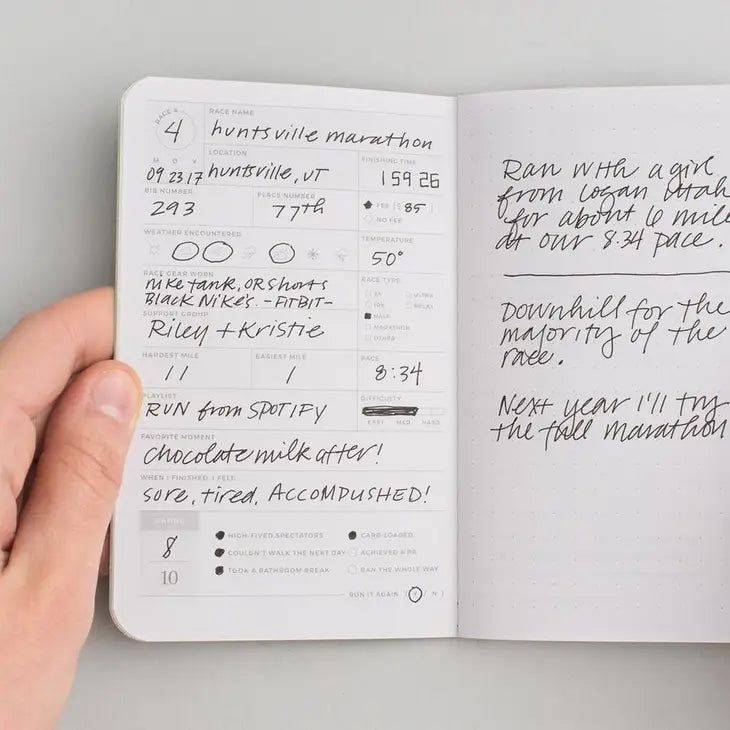 RACE #
4
RACE NAME
huntsville marathon
M D Y
09 23 17
LOCATION
huntsville, UT
FINISHING TIME
1 59 26
BIB NUMBER
293
PLACE NUMBER
77th
FEE ( $ 85 )
NO FEE
WEATHER ENCOUNTERED
TEMPERATURE
50°
RACE GEAR WORN
nike tank, OR shorts
Black Nike's. -FITBIT-
RACE TYPE:
5K
ULTRA
10K
RELAY
HALF
MARATHON
OTHER
SUPPORT GROUP
Riley + Kristie
HARDEST MILE
11
EASIEST MILE
1
PACE
8:34
PLAYLIST
RUN from SPOTIFY
DIFFICULTY
EASY MED HARD
FAVORITE MOMENT
chocolate milk after!
WHEN I FINISHED, I FELT:
sore, tired, ACCOMPLISHED!
RATING
8
10
HIGH-FIVED SPECTATORS
CARB-LOADED
COULDN'T WALK THE NEXT DAY
ACHIEVED A PR
TOOK A BATHROOM BREAK
RAN THE WHOLE WAY
RUN IT AGAIN ( Y / N )
Ran with a girl
from Logan Utah
for about 6 mile
at our 8:34 pace.
Downhill for the
majority of the
race.
Next year I'll try
the full marathon